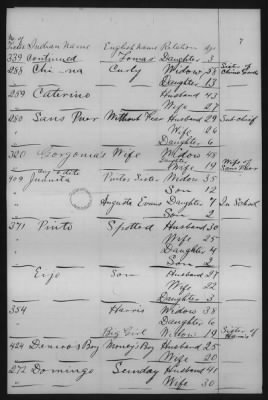 7
No. of
Ticket Indian Name English Name Relation Age
339 Continued Tomas Daughter 3
288 Chi na Curly Widow 28 Sister of
Daughter 13
259 Caterino Husband 43
Wife 27
280 Sans Puer Without Fear Husband 29 Sub chief
Wife 26
Daughter 6
320 Goronia's Wife Widow 48
Wife 19 Wife of Sans Puer
409 Juanita Pinto's Sister Widow 35
Son 12
" Augusta Evans Daughter 7 In School
" Son 2
271 Pinto Spotted Husband 30
" Wife 25
Daughter 4
" Son 2
Erjo Son Husband 27
Wife 22
Daughter 3
354 Harris Widow 38
Daughter 6
" Big Girl Widow 19 Sister of Harris
424 Boy Money's Boy Husband 25
Wife 20
272 Domingo Sunday Husband 41
" Wife 30